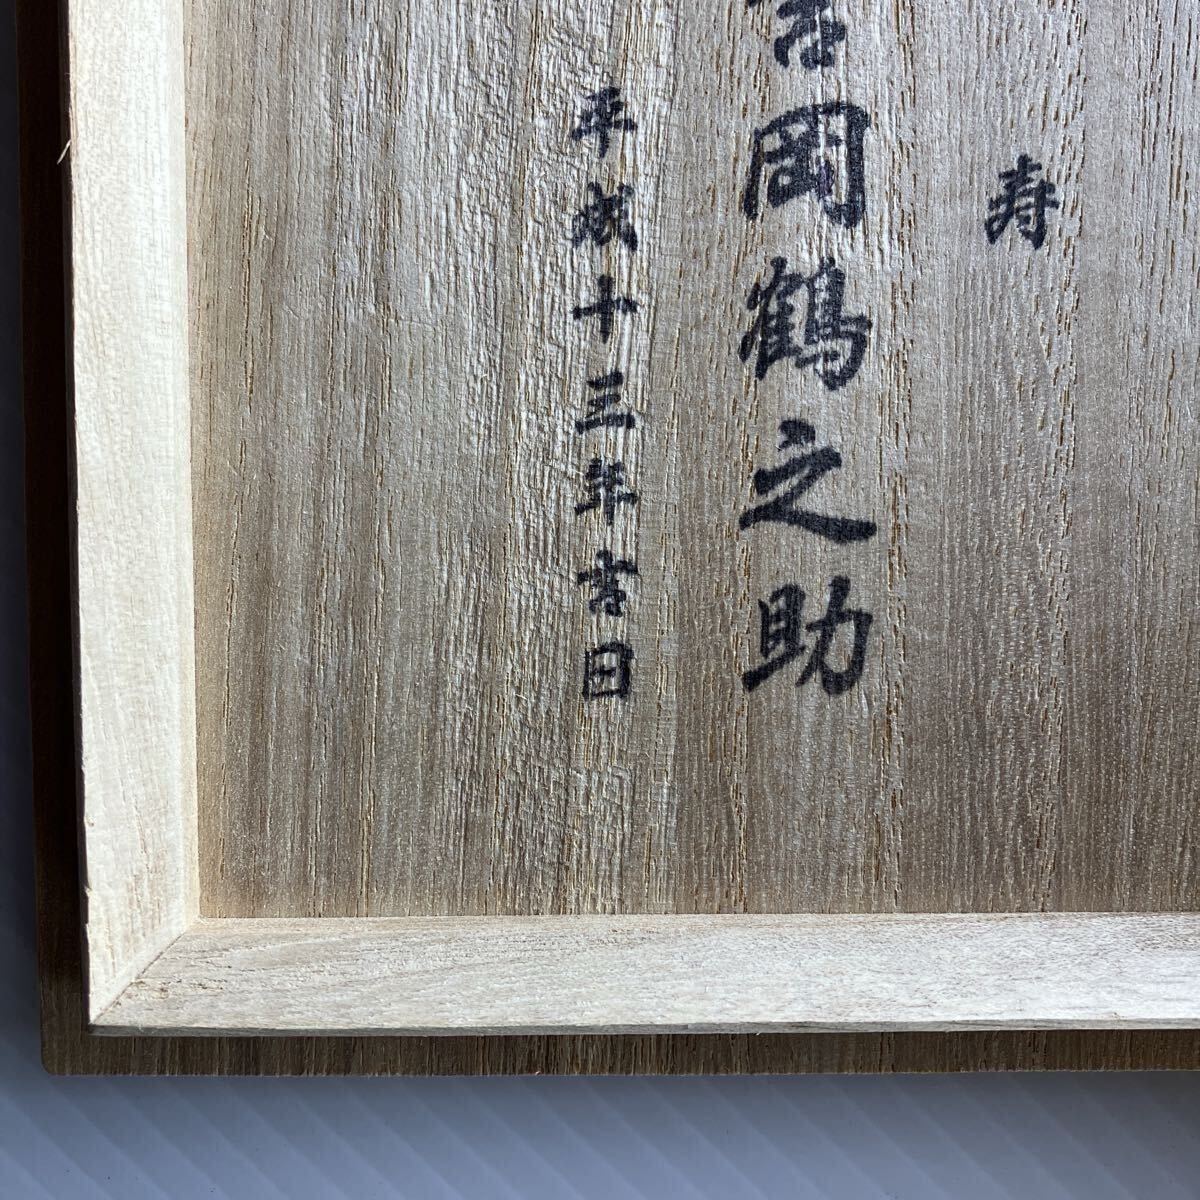 寿
吉岡鶴之助
平成十三年吉日